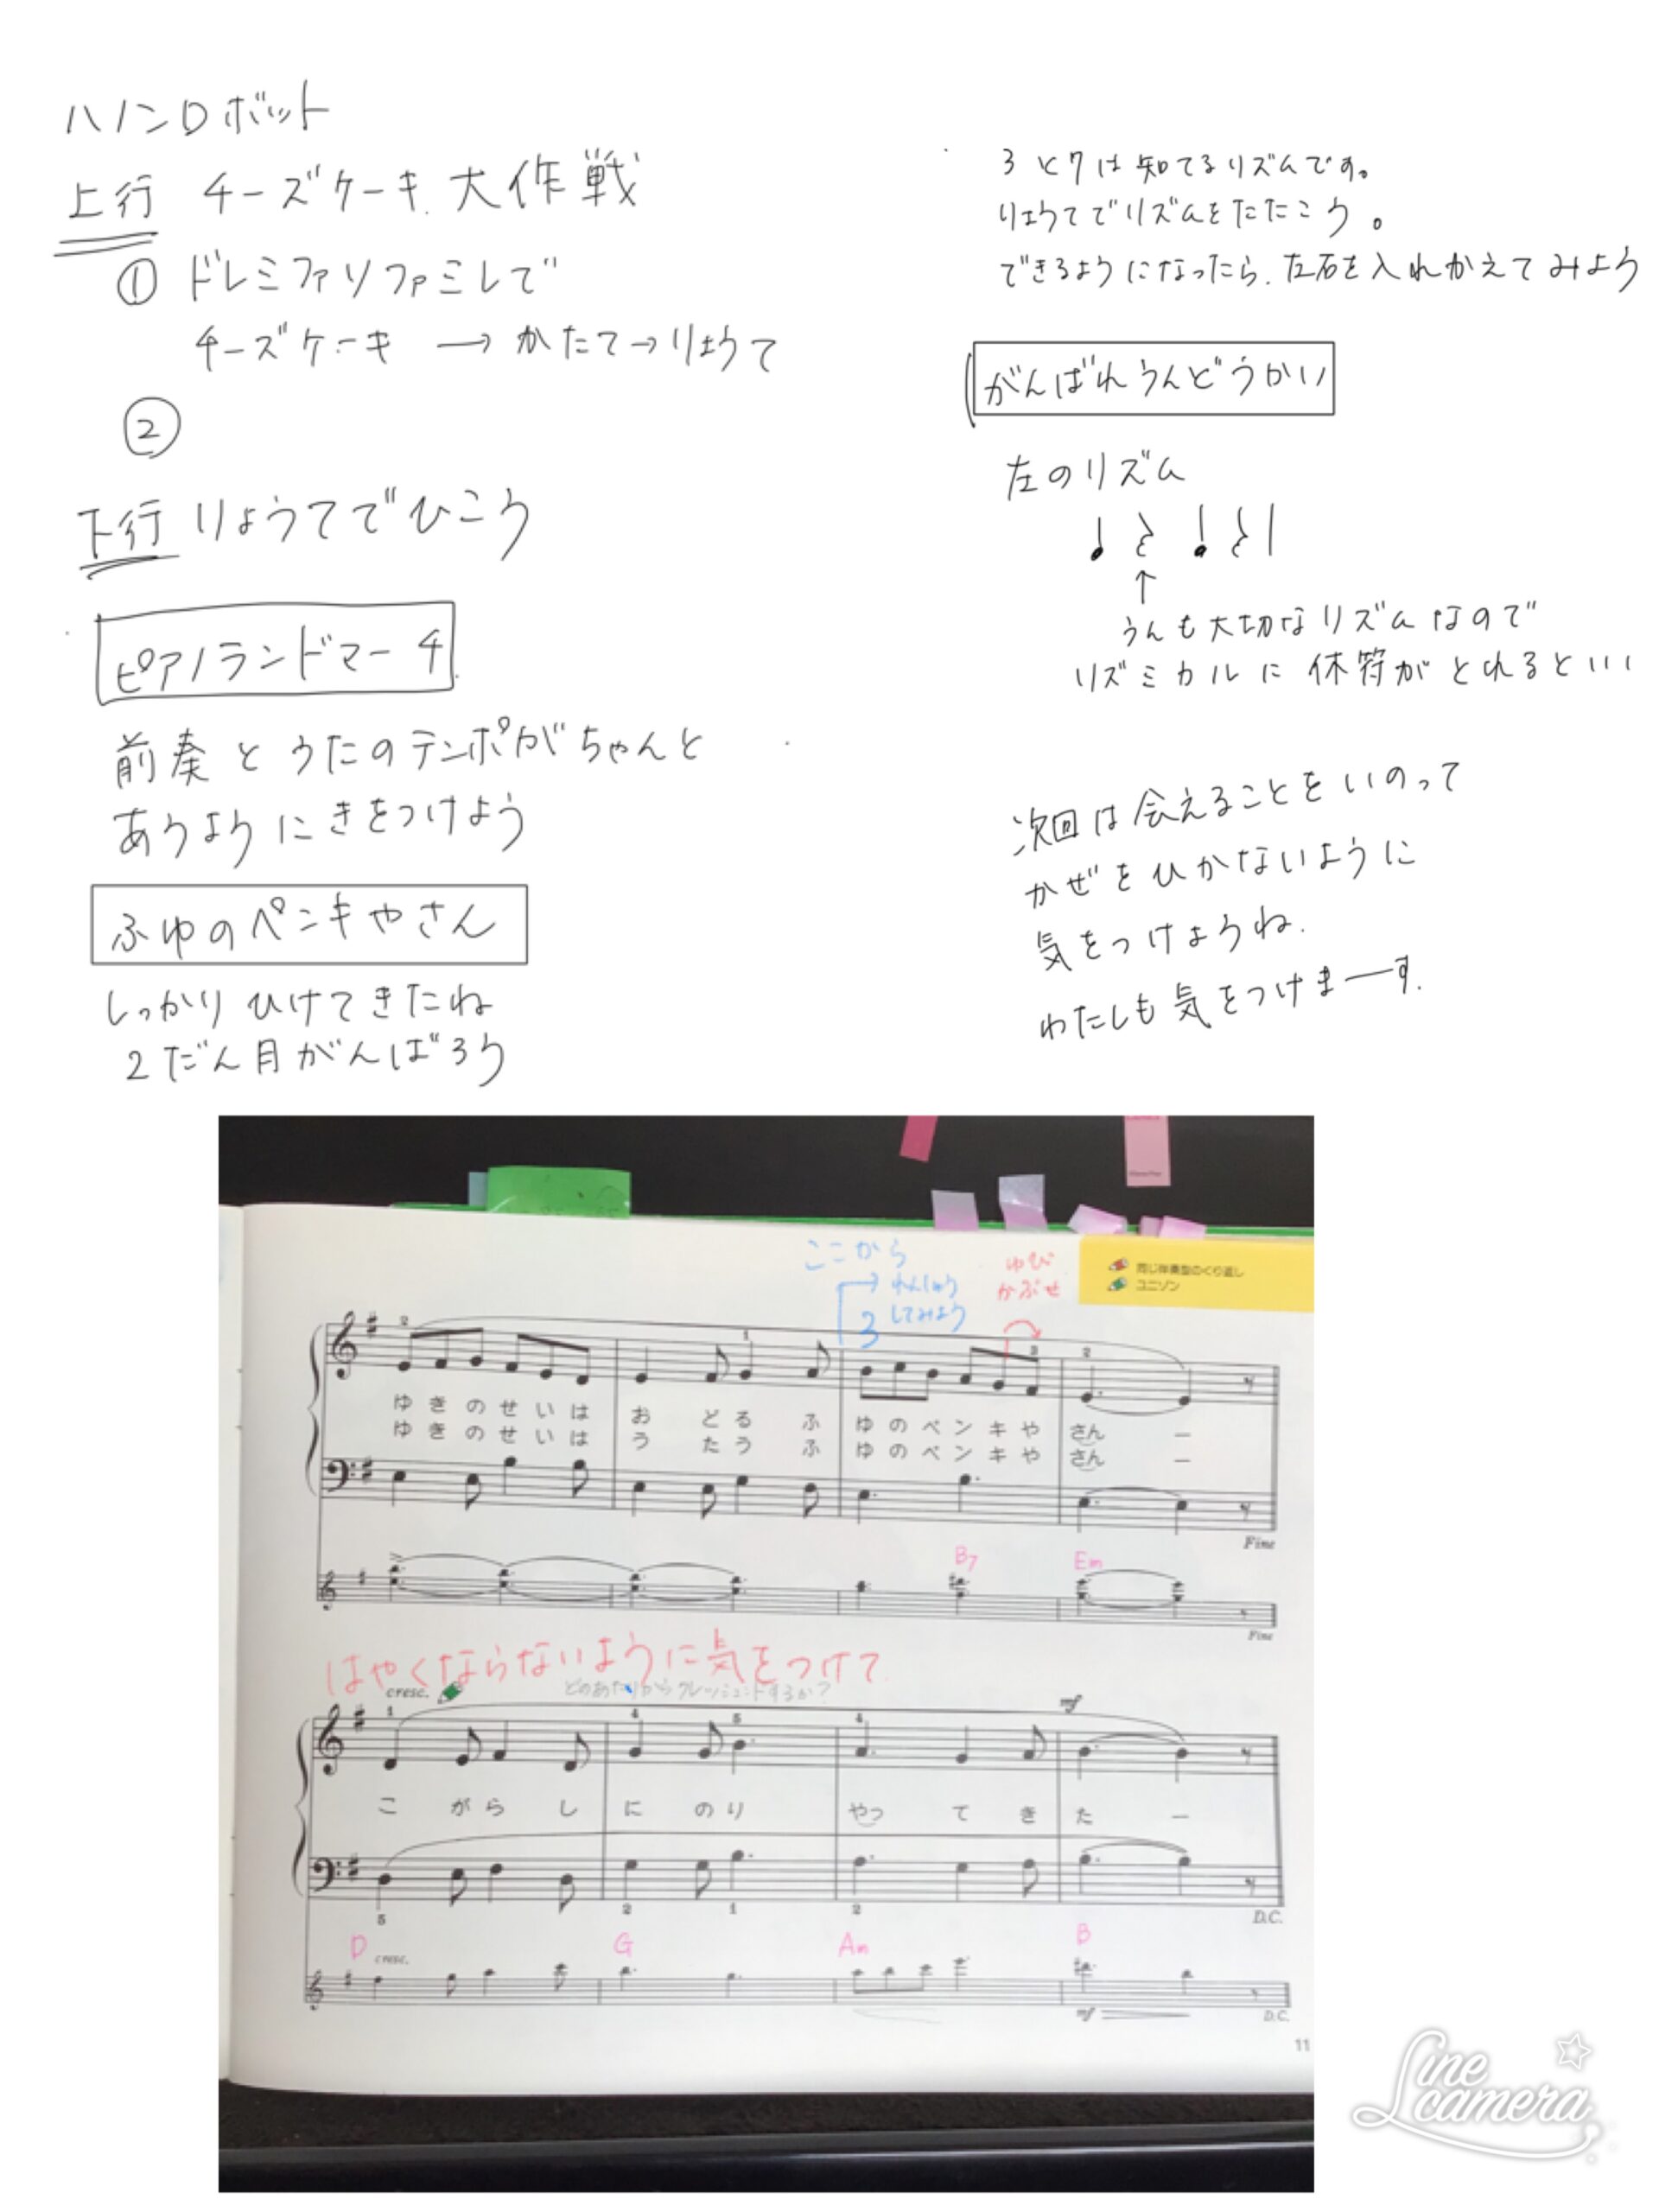 ハノンロボット
上行 チーズケーキ大作戦
① ドレミファソファミレで
チーズケーキ → かたて→りょうて
②
下行 りょうてでひこう
ピアノランドマーチ
前奏とうたのテンポがちゃんと
あうようにきをつけよう
ふゆのペンキやさん
しっかりひけてきたね
2だん目がんばろう
3と7は知てるリズムです。
りょうてでリズムをたたこう。
できるようになったら、左右を入れかえてみよう
がんばれうんどうかい
左のリズム
↑
うんも大切なリズムなので
リズミカルに休符がとれるといい
次回は会えることをいのって
かぜをひかないように
気をつけようね.
わたしも気をつけまーす.
ここから
→ れんしゅう
3 してみよう
ゆび
かぶせ
同じ伴奏型のくり返し
ユニゾン
2 1 3 2
ゆきのせいは おどるふ ゆのペンキや さん ー
ゆきのせいは うたうふ ゆのペンキや さん ー
Fine
B7 Em
Fine
はやくならないように気をつけて
cresc. どのあたりからクレッシェンドするか?
mf
1 4 5 4
こ がら し に のり やっ て き た ー
5 2 1 2
D.C.
D G Am B
cresc.
mf
D.C.
11
Line camera